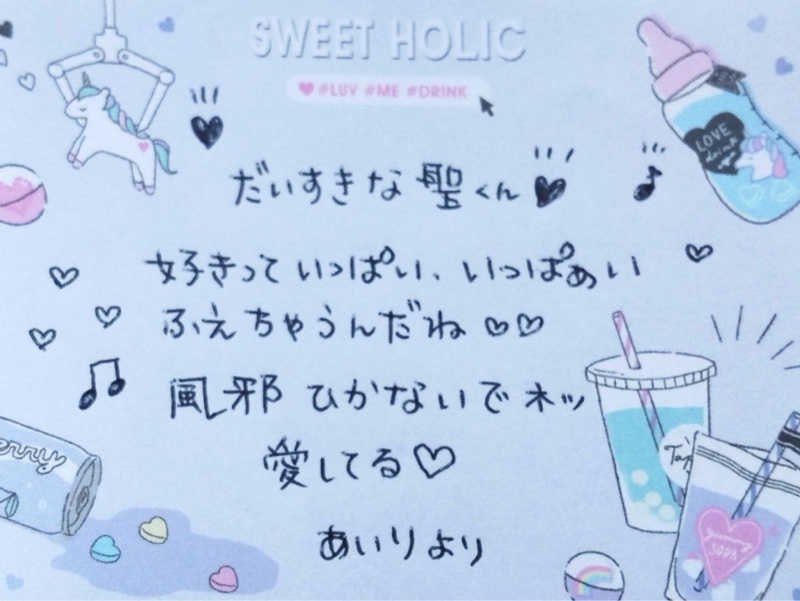 SWEET HOLIC
#LUV #ME #DRINK
だいすきな 聖くん
LOVE
drink
好きって いっぱい、いっぱぁい
ふえちゃうんだね
風邪 ひかないでネッ
愛してる
あいりより
erry
Tap
yummy
SODA